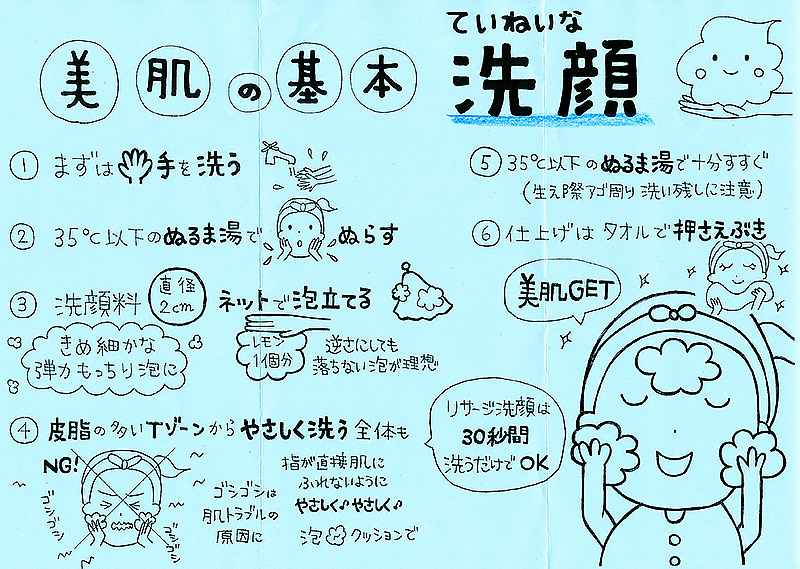 美肌の基本
ていねいな
洗顔
① まずは手を洗う
② 35℃以下のぬるま湯で ぬらす
③ 洗顔料 直径2cm ネットで泡立てる
きめ細かな
弾力もっちり泡に
レモン
1個分
逆さにしても
落ちない泡が理想
④ 皮脂の多いTゾーンからやさしく洗う 全体も
NG!
ゴシゴシ
ゴシゴシ
ゴシゴシは
肌トラブルの
原因に
指が直接肌に
ふれないように
やさしく♪やさしく♪
泡 クッションで
⑤ 35℃以下のぬるま湯で十分すすぐ
(生え際アゴ周り 洗い残しに注意)
⑥ 仕上げは タオルで押さえぶき
美肌GET
リサージ洗顔は
30秒間
洗うだけでOK